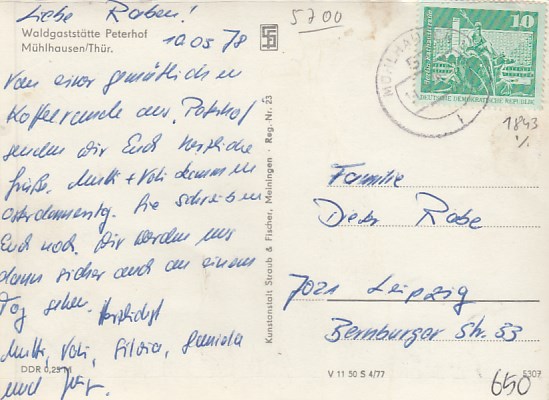 Liebe Raben!
Waldgaststätte Peterhof
Mühlhausen/Thür.
10 05 78
Von einer gemütlichen
Kafferunde am Peterhof
senden wir Euch herzliche
Grüße. Mutti + Vati kommen
Sie schreiben
Euch noch. Wir werden uns
dann sicher auch an einem
Tag sehen. Herzlichst
Mutti, Vati, Silvia, Daniela
und Jürg.
DDR 0,25 M
Kunstanstalt Straub & Fischer, Meiningen · Reg. Nr. 23
5700
10
DEUTSCHE DEMOKRATISCHE REPUBLIK
1843
Familie
Dietr Rabe
7021 Leipzig
Bernburger Str. 53
V 11 50 S 4/77
5307
650